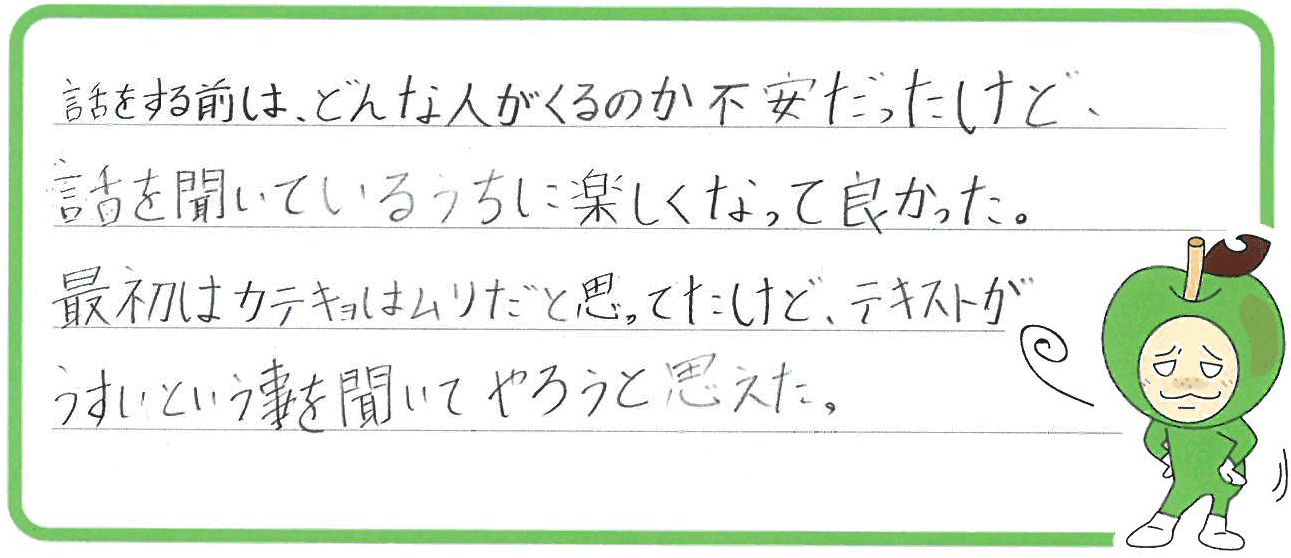 話をする前は、どんな人がくるのか不安だったけど、
話を聞いているうちに楽しくなって良かった。
最初はカテキョはムリだと思ってたけど、テキストが
うすいという事を聞いてやろうと思えた。